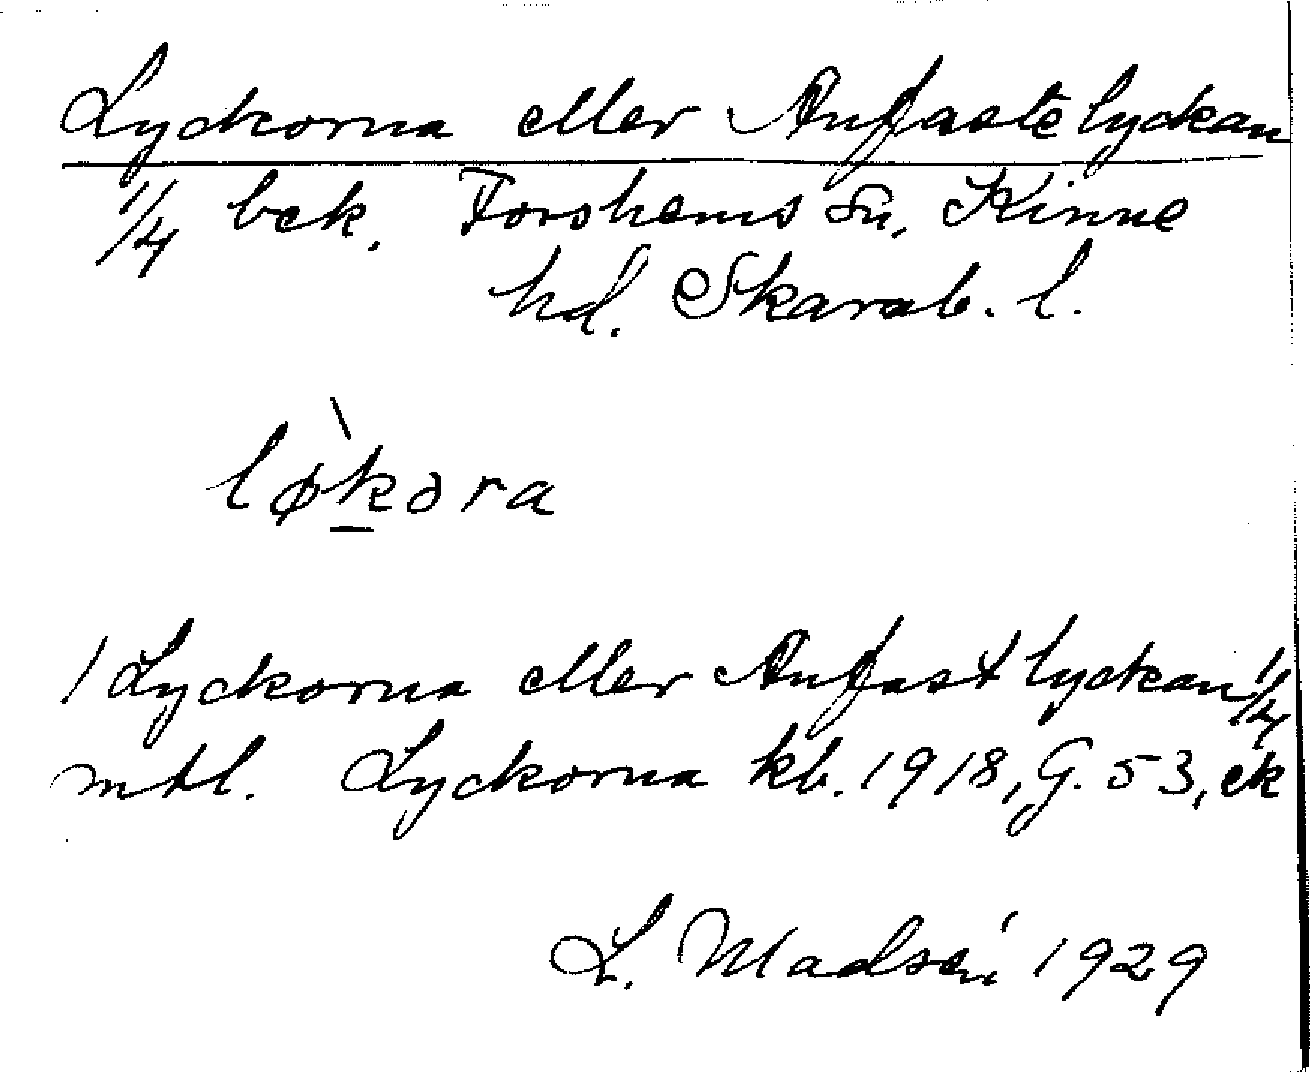 Lyckorna eller Anfastelyckan
1/4 bck. Forshems sn, Kinne
hd. Skarab. l.
lø̀kora
1 Lyckorna eller Anfastlyckan 1/4
mtl. Lyckorna kb. 1918, G. 53, ek
L. Madsén 1929